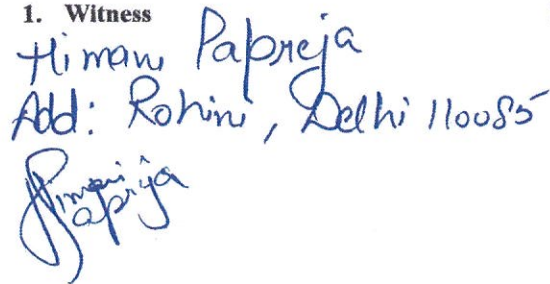 1. Witness
Himani Papreja
Add: Rohini, Delhi 110085
Himani
Papreja